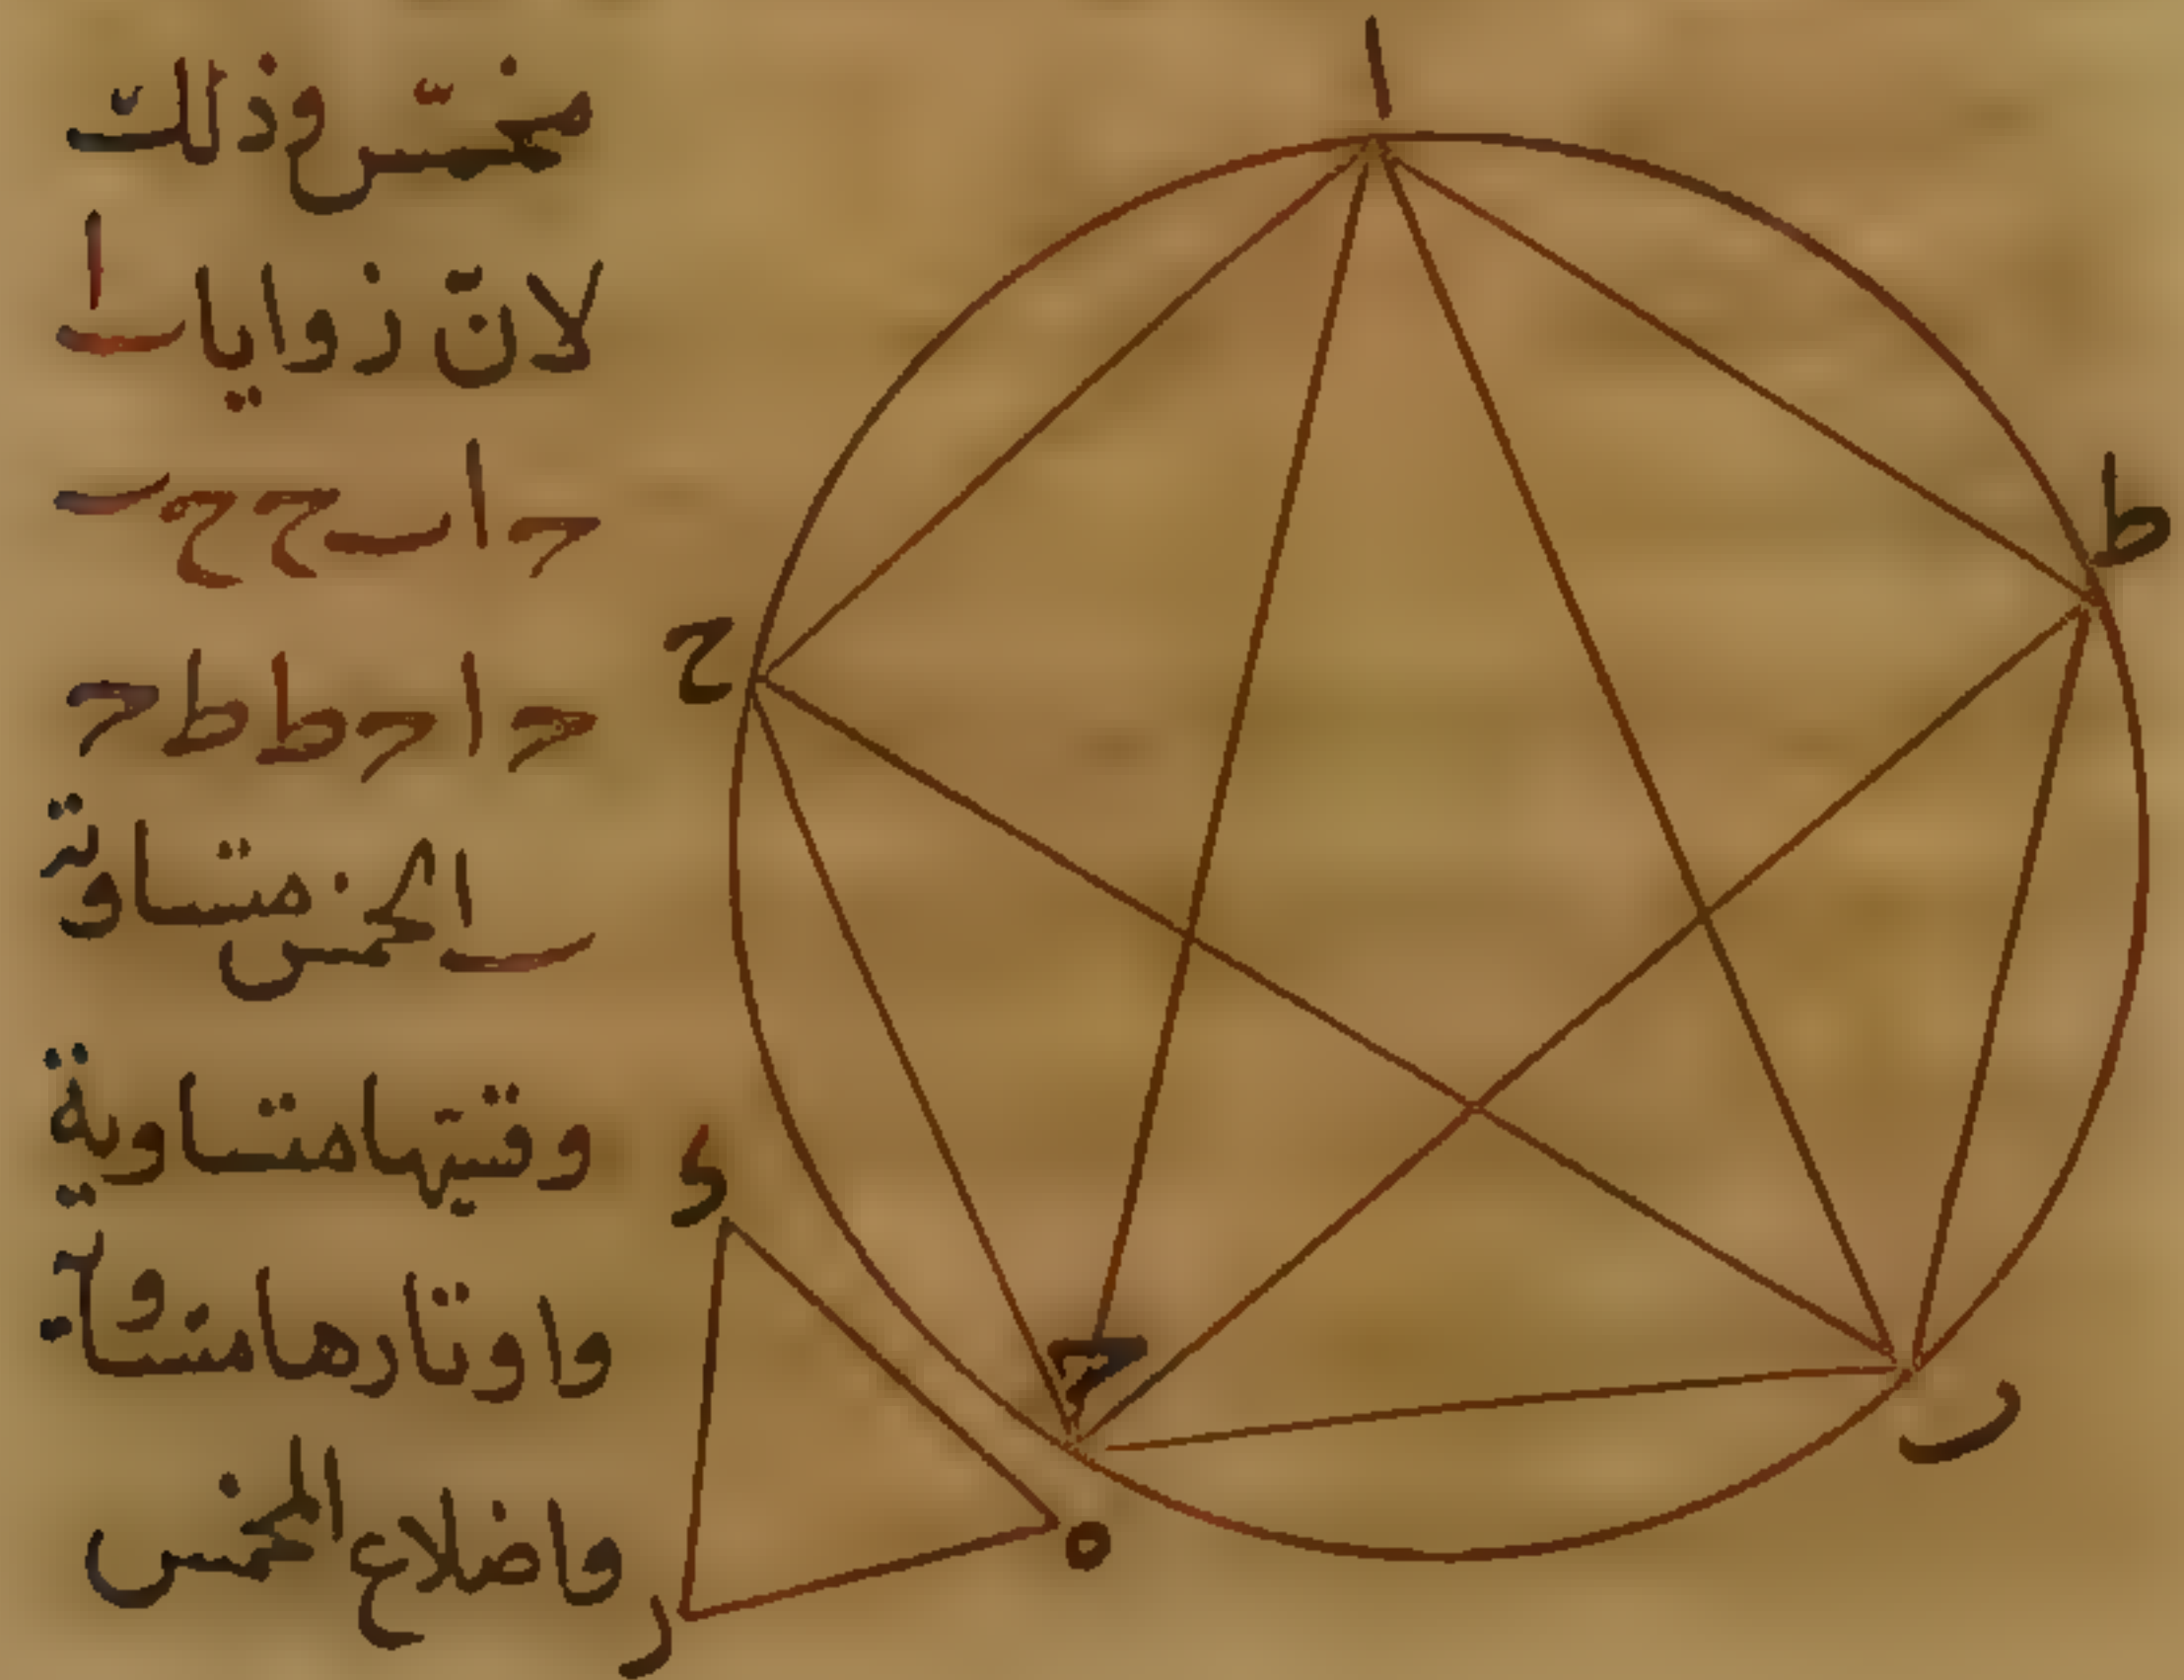 مخمّس وذلك
لانّ زوايا ا
ح ا ب ح ح
ح ا ح ط ط ح
الخمس متساوية
وقسيّها متساوية
واوتارها متساو
واضلاع المخمس
ا
ط
ح
ح
ب
د
ه
ر